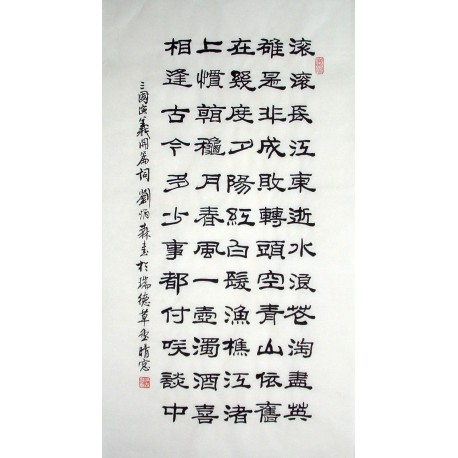 滚滚長江東逝水浪花淘盡英
雄是非成敗轉頭空青山依舊
在幾度夕陽紅白髮漁樵江渚
上慣看龝月春風一壺濁酒喜
相逢古今多少事都付咲談中
三國演義開篇詞 劉炳森書於瑞德草堂晴窓